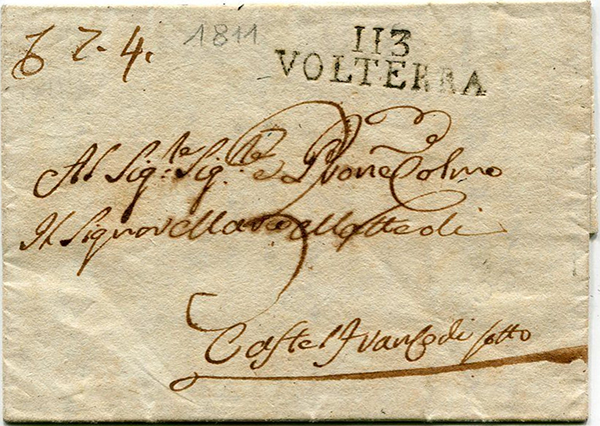 1811
6 7. 4.
113
VOLTERRA
Al Sig.re Sig.re e Prone Colmo
Il Signor Mario Maffedi
Castel Franco di sotto